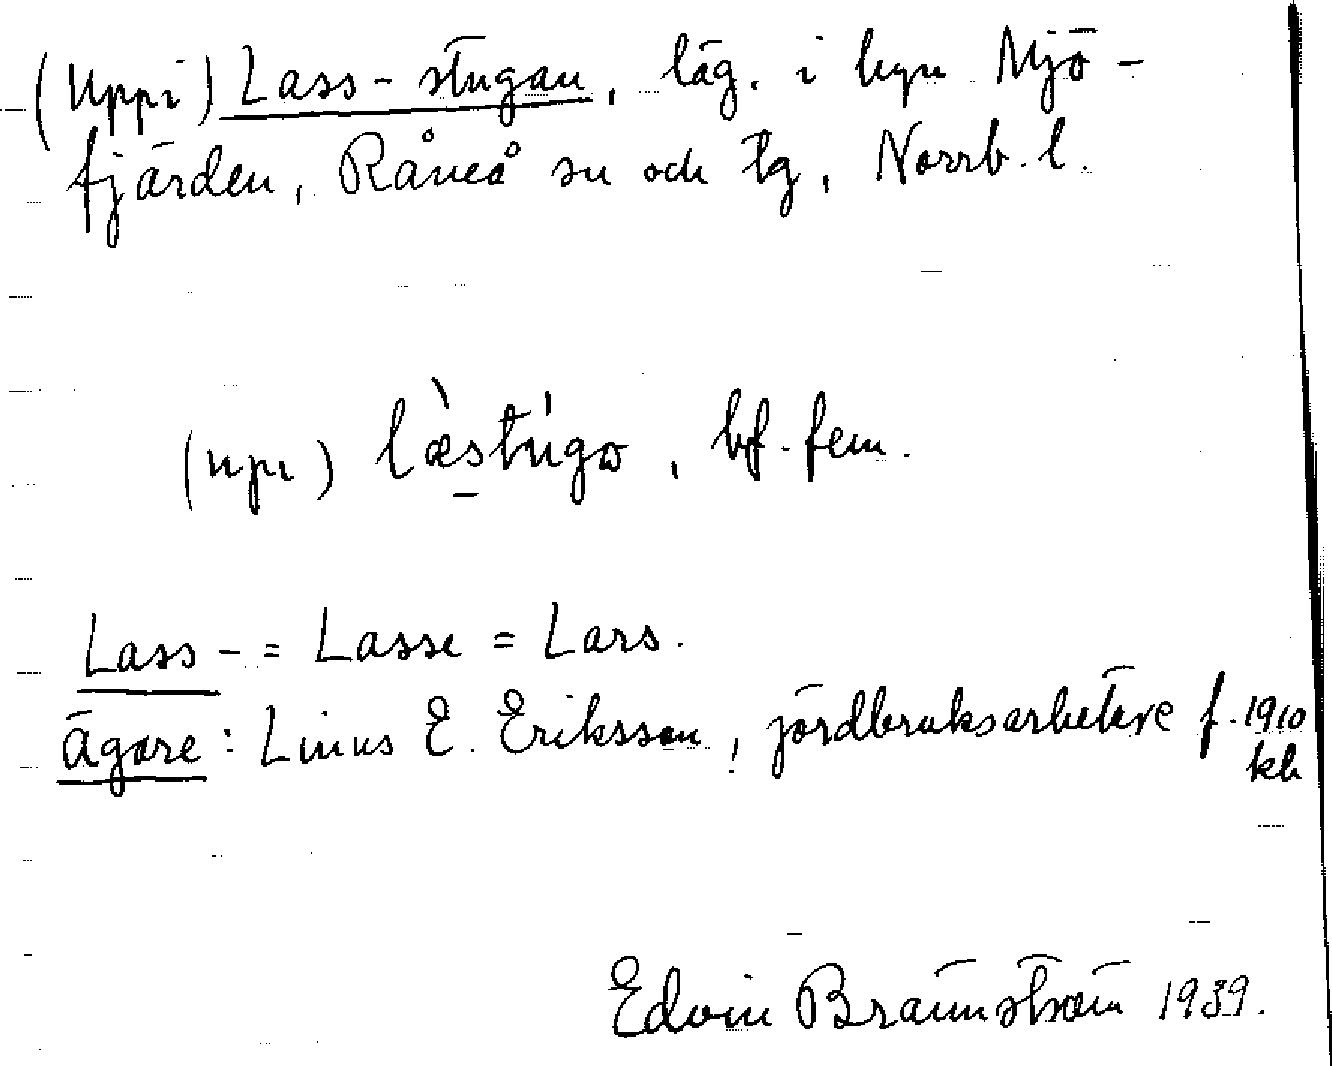 (Uppi) Lass-stugan, läg. i byn Mjö-
fjärden, Råneå sn och tg, Norrb. l.
(upi) læstugo, bf. fem.
Lass- = Lasse = Lars.
Ägare: Linus E. Eriksson, jordbruksarbetare f. 1910
kb
Edvin Brännström 1939.